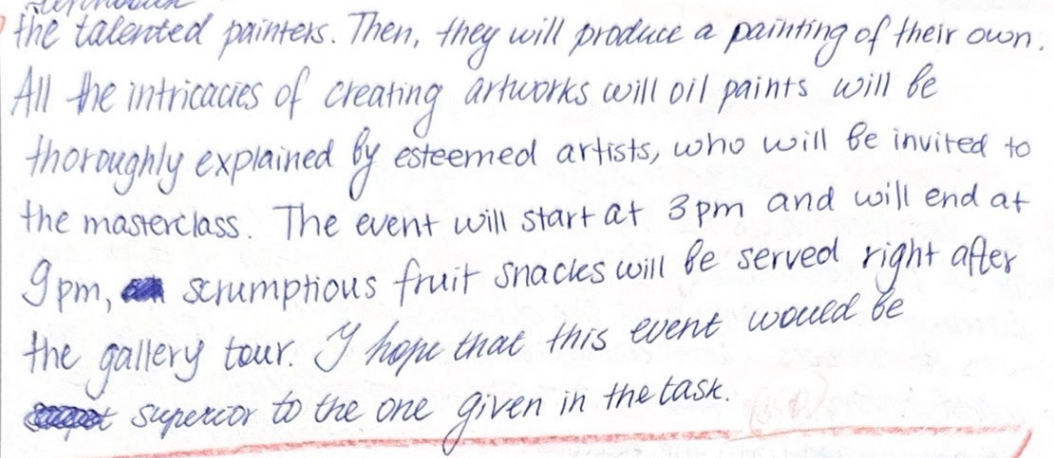 the talented painters. Then, they will produce a painting of their own.
All the intricacies of creating artworks will oil paints will be
thoroughly explained by esteemed artists, who will be invited to
the masterclass. The event will start at 3 pm and will end at
9 pm, scrumptious fruit snacks will be served right after
the gallery tour. I hope that this event would be
superior to the one given in the task.